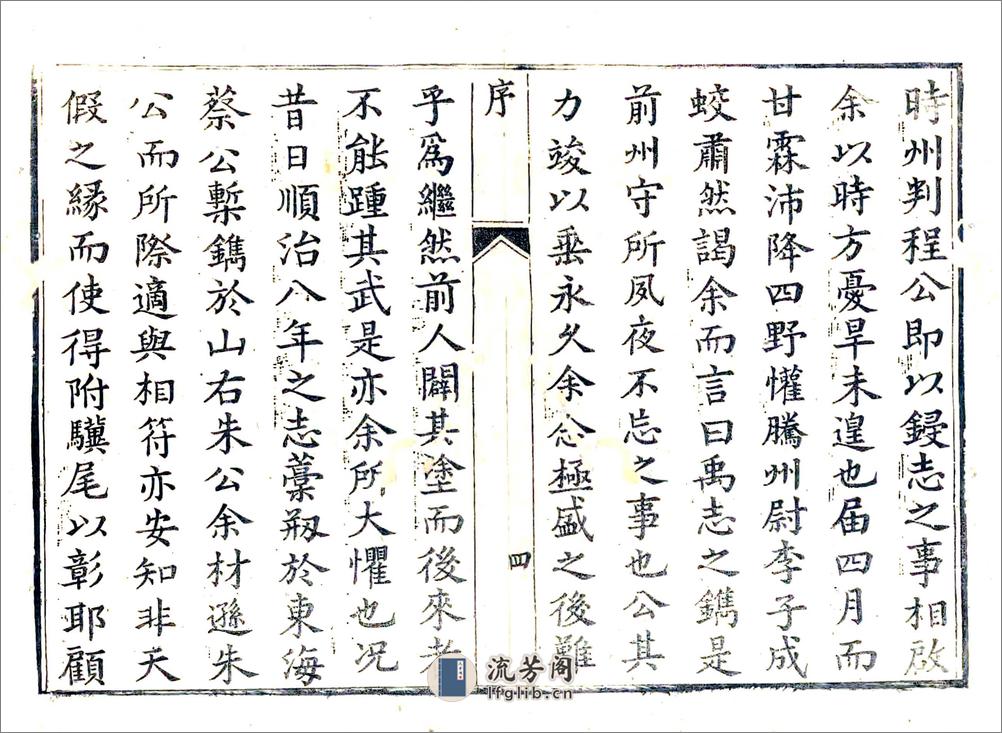 時州判程公即以鋟志之事相啟
余以時方憂旱未遑也届四月而
甘霖沛降四野懽騰州尉李子成
蛟肅然謁余而言曰禹志之鐫是
前州守所夙夜不忘之事也公其
力竣以垂永久余念極盛之後難
序
四
乎為繼然前人闢其塗而後來者
不能踵其武是亦余所大懼也况
昔日順治八年之志藁剏於東海
蔡公槧鐫於山右朱公余材遜朱
公而所際適與相符亦安知非天
假之緣而使得附驥尾以彰耶顧
流芳阁
lfglib.cn